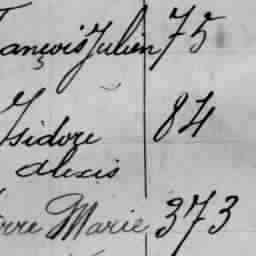 ançois Julien 75
Isidore 84
Alexis
erre Marie 373